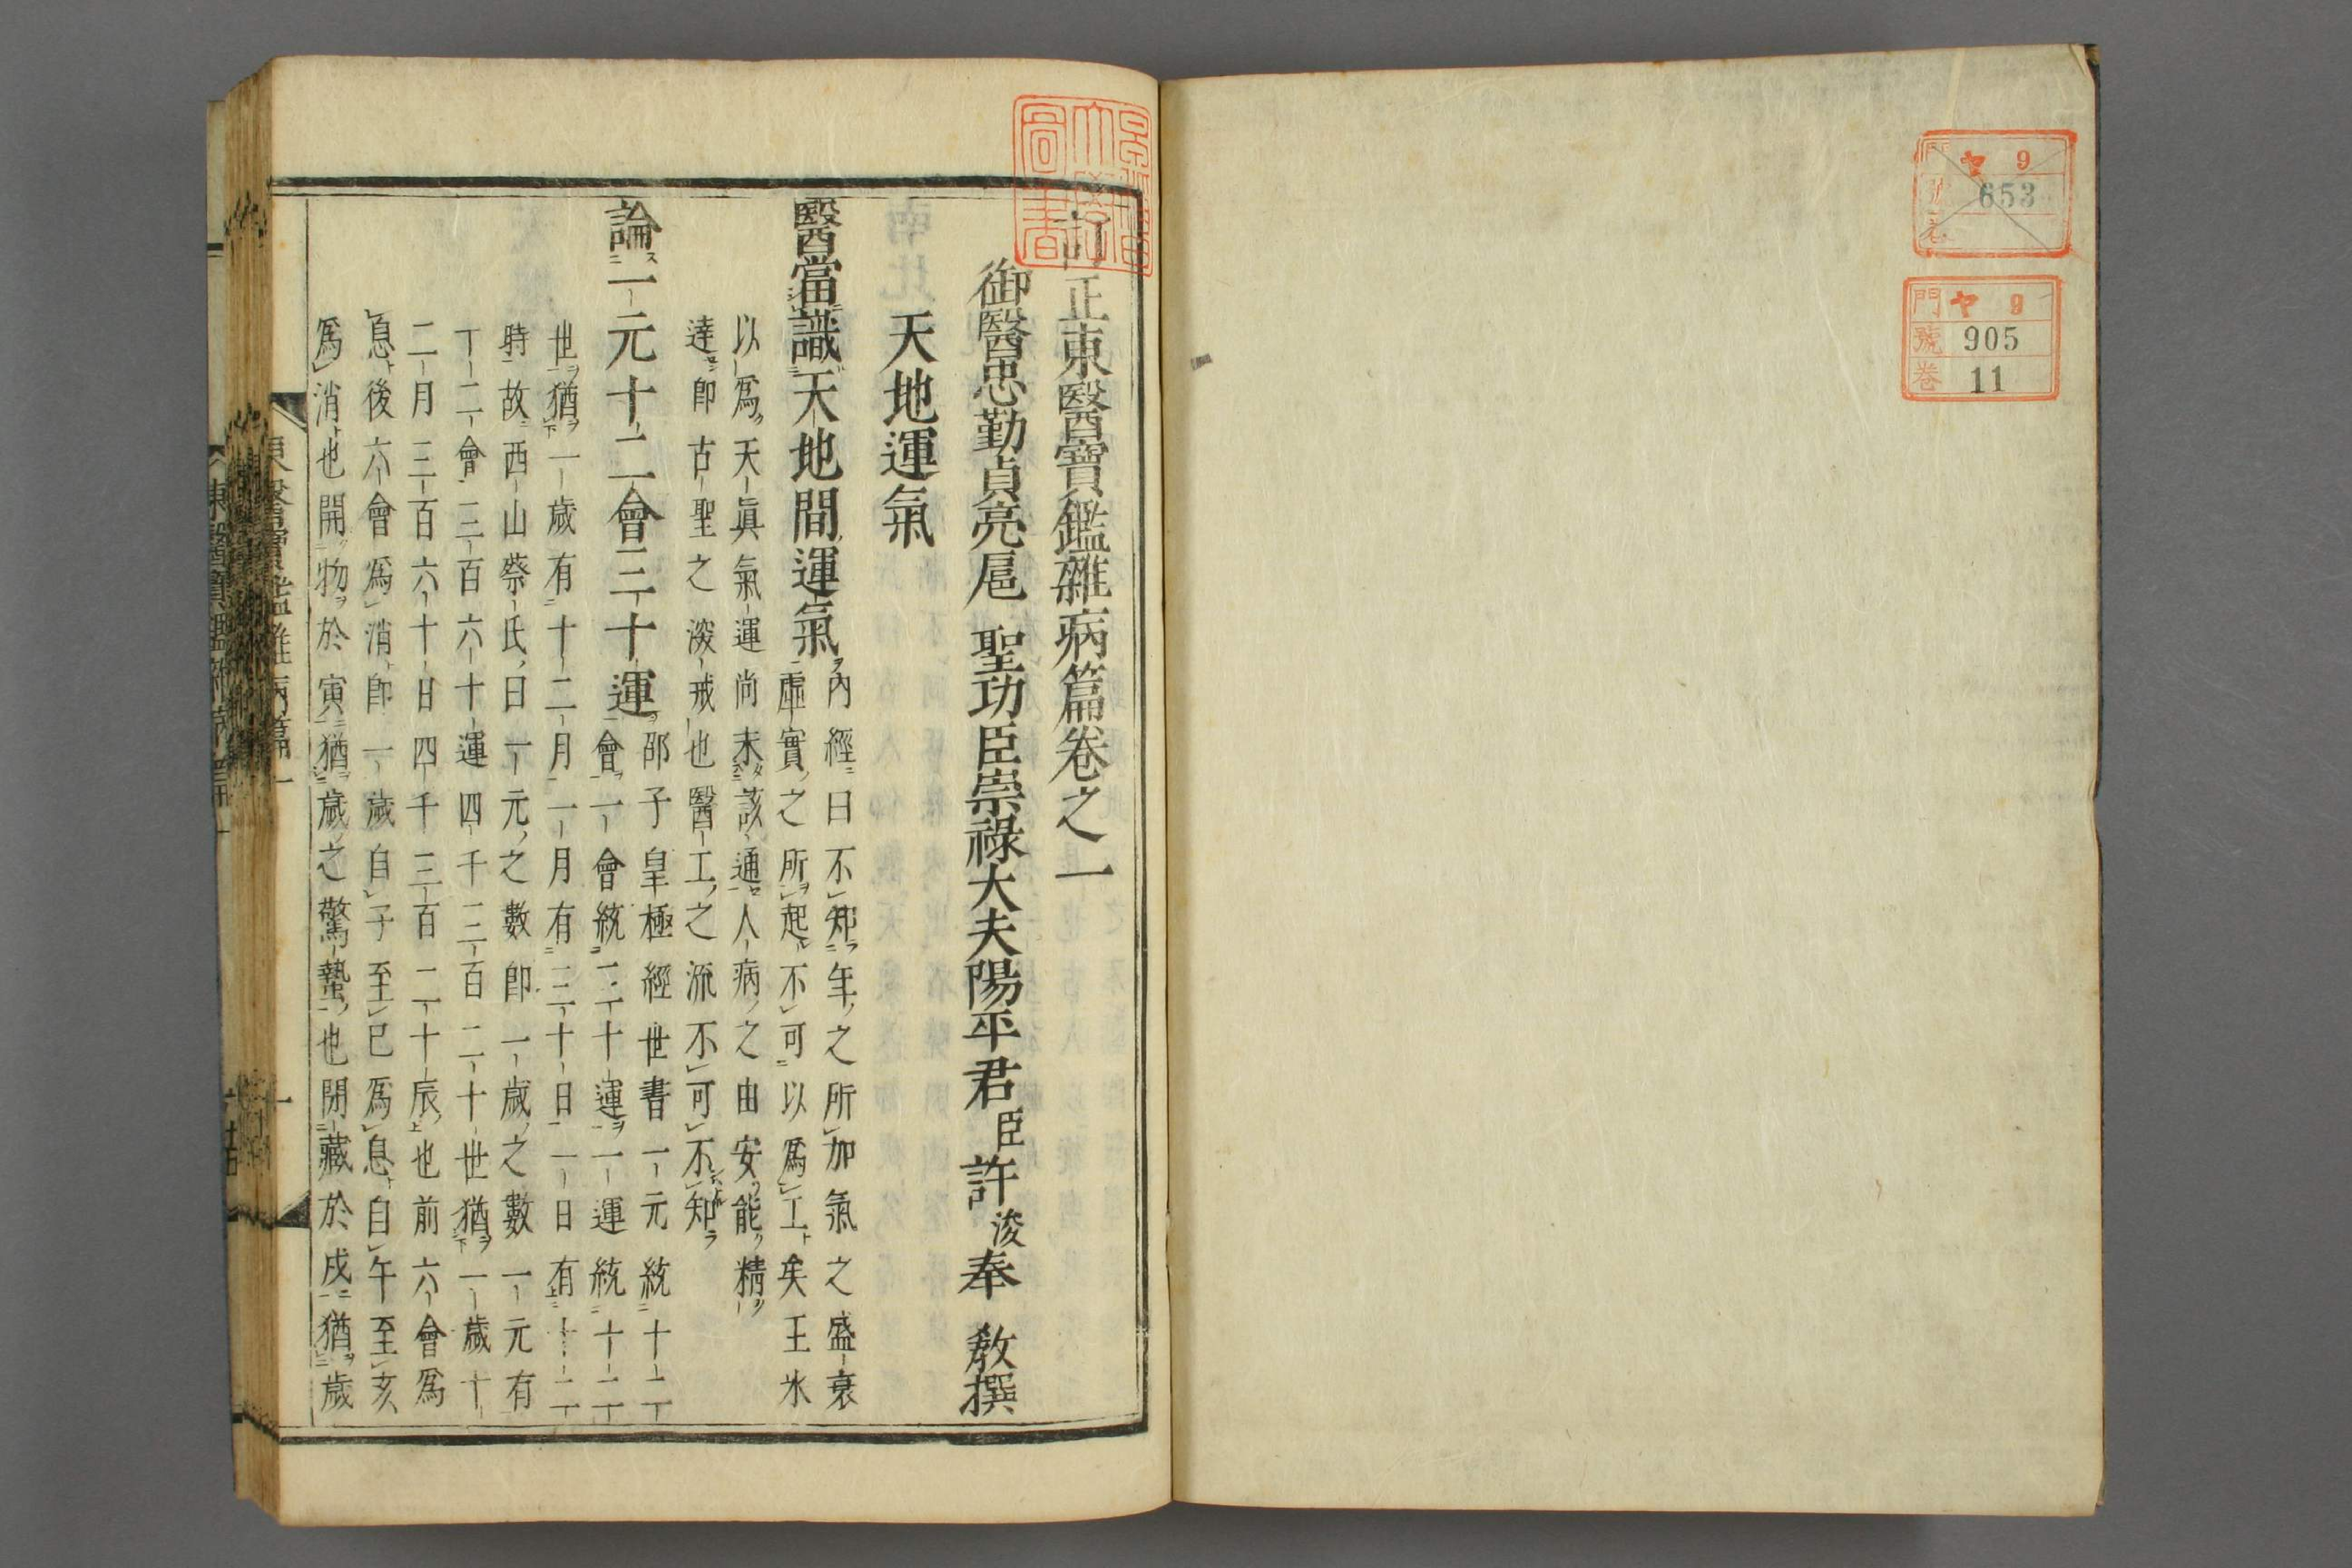 ヤ 9
653
門 ヤ 9
號 905
卷 11
訂正東醫寶鑑雜病篇卷之一
御醫忠勤貞亮扈 聖功臣崇祿大夫陽平君臣許浚奉 敎撰
天地運氣
醫當識天地間運氣 內經曰不知年之所加氣之盛衰
虛實之所起不可以爲工矣王氷
以爲天眞氣運尚未該通人病之由安能精
達卽古聖之深戒也醫工之流不可不知
論一元十二會三十運 邵子皇極經世書一元統十二
會一會統三十運一運統十二
世猶一歲有十二月一月有三十日一日有十二
時故西山蔡氏曰一元之數卽一歲之數一元有
十二會三百六十運四千三百二十世猶一歲十
二月三百六十日四千三百二十辰也前六會爲
息後六會爲消卽一歲自子至巳爲息自午至亥
爲消也開物於寅猶歲之驚蟄也閉藏於戌猶歲
東醫寶鑑雜病篇一 一